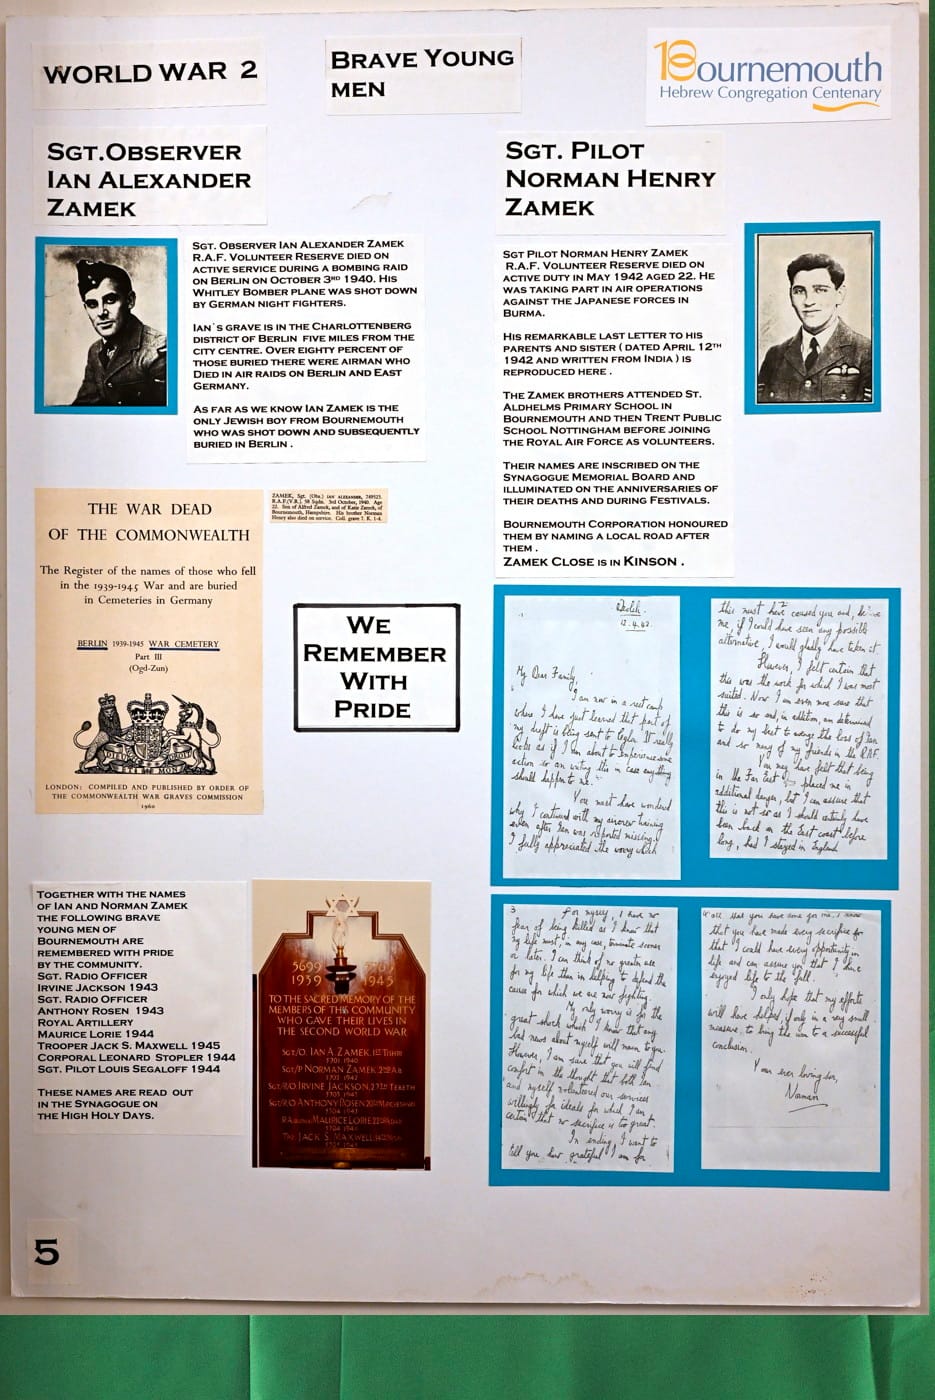 WORLD WAR 2
BRAVE YOUNG
MEN
Bournemouth
Hebrew Congregation Centenary
SGT.OBSERVER
IAN ALEXANDER
ZAMEK
SGT. OBSERVER IAN ALEXANDER ZAMEK
R.A.F. VOLUNTEER RESERVE DIED ON
ACTIVE SERVICE DURING A BOMBING RAID
ON BERLIN ON OCTOBER 3RD 1940. HIS
WHITLEY BOMBER PLANE WAS SHOT DOWN
BY GERMAN NIGHT FIGHTERS.
IAN`S GRAVE IS IN THE CHARLOTTENBERG
DISTRICT OF BERLIN FIVE MILES FROM THE
CITY CENTRE. OVER EIGHTY PERCENT OF
THOSE BURIED THERE WERE AIRMAN WHO
DIED IN AIR RAIDS ON BERLIN AND EAST
GERMANY.
AS FAR AS WE KNOW IAN ZAMEK IS THE
ONLY JEWISH BOY FROM BOURNEMOUTH
WHO WAS SHOT DOWN AND SUBSEQUENTLY
BURIED IN BERLIN .
THE WAR DEAD
OF THE COMMONWEALTH
The Register of the names of those who fell
in the 1939-1945 War and are buried
in Cemeteries in Germany
BERLIN 1939-1945 WAR CEMETERY
Part III
(Ogd-Zun)
LONDON: COMPILED AND PUBLISHED BY ORDER OF
THE COMMONWEALTH WAR GRAVES COMMISSION
1960
ZAMEK, Sgt. (Obs.) IAN ALEXANDER, 749523.
R.A.F.(V.R.). 58 Sqdn. 3rd October, 1940. Age
22. Son of Alfred Zamek, and of Katie Zamek, of
Bournemouth, Hampshire. His brother Norman
Henry also died on service. Coll. grave 7. K. 1-4.
WE
REMEMBER
WITH
PRIDE
TOGETHER WITH THE NAMES
OF IAN AND NORMAN ZAMEK
THE FOLLOWING BRAVE
YOUNG MEN OF
BOURNEMOUTH ARE
REMEMBERED WITH PRIDE
BY THE COMMUNITY.
SGT. RADIO OFFICER
IRVINE JACKSON 1943
SGT. RADIO OFFICER
ANTHONY ROSEN 1943
ROYAL ARTILLERY
MAURICE LORIE 1944
TROOPER JACK S. MAXWELL 1945
CORPORAL LEONARD STOPLER 1944
SGT. PILOT LOUIS SEGALOFF 1944
THESE NAMES ARE READ OUT
IN THE SYNAGOGUE ON
THE HIGH HOLY DAYS.
5699
1939 1945
TO THE SACRED MEMORY OF THE
MEMBERS OF THIS COMMUNITY
WHO GAVE THEIR LIVES IN
THE SECOND WORLD WAR
SGT/O. IAN A. ZAMEK, 1ST TISHRI
5701 1940
SGT/P. NORMAN ZAMEK
SGT/R/O IRVINE JACKSON, TEBETH
SGT/R/O ANTHONY ROSEN
MAURICE LORIE
JACK S. MAXWELL
SGT. PILOT
NORMAN HENRY
ZAMEK
SGT PILOT NORMAN HENRY ZAMEK
R.A.F. VOLUNTEER RESERVE DIED ON
ACTIVE DUTY IN MAY 1942 AGED 22. HE
WAS TAKING PART IN AIR OPERATIONS
AGAINST THE JAPANESE FORCES IN
BURMA.
HIS REMARKABLE LAST LETTER TO HIS
PARENTS AND SISTER ( DATED APRIL 12TH
1942 AND WRITTEN FROM INDIA ) IS
REPRODUCED HERE .
THE ZAMEK BROTHERS ATTENDED ST.
ALDHELMS PRIMARY SCHOOL IN
BOURNEMOUTH AND THEN TRENT PUBLIC
SCHOOL NOTTINGHAM BEFORE JOINING
THE ROYAL AIR FORCE AS VOLUNTEERS.
THEIR NAMES ARE INSCRIBED ON THE
SYNAGOGUE MEMORIAL BOARD AND
ILLUMINATED ON THE ANNIVERSARIES OF
THEIR DEATHS AND DURING FESTIVALS.
BOURNEMOUTH CORPORATION HONOURED
THEM BY NAMING A LOCAL ROAD AFTER
THEM .
ZAMEK CLOSE IS IN KINSON .
12.4.42.
My Dear Family,
I am now in a rest camp
where I have just learned that part of
my kit is being sent to Ceylon. It really
looks as if I am about to experience some
action so am writing this in case anything
should happen to me.
You must have wondered
why I continued with my aircrew training
even after Ian was reported missing.
I fully appreciated the worry which
this must have caused you and, believe
me, if I could have seen any possible
alternative, I would gladly have taken it
However, I felt certain that
this was the work for which I was most
suited. Now I am even more sure that
this is so and, in addition, am determined
to do my best to avenge the loss of Ian
and so many of my friends in the R.A.F.
You may have felt that being
in the Far East placed me in
additional danger, but I can assure that
this is not so as I should certainly have
been back on the East coast before
long, had I stayed in England
3
For myself, I have no
fear of being killed as I know that
my life must, in any case, terminate sooner
or later. I can think of no greater use
for my life than in helping to defend the
cause for which we are now fighting.
My only worry is for the
great shock which I know that any
bad news about myself will mean to you.
However, I am sure that you will find
comfort in the thought that both Ian
and myself volunteered our services
willingly for ideals for which I am
certain that no sacrifice is too great.
In ending, I want to
tell you how grateful I am for
all that you have done for me. I know
that you have made every sacrifice for
that I could have every opportunity in
life and can assure you that I have
enjoyed life to the full.
I only hope that my efforts
will have helped, if only in a very small
measure, to bring the war to a successful
conclusion.
Your ever loving son,
Norman
5